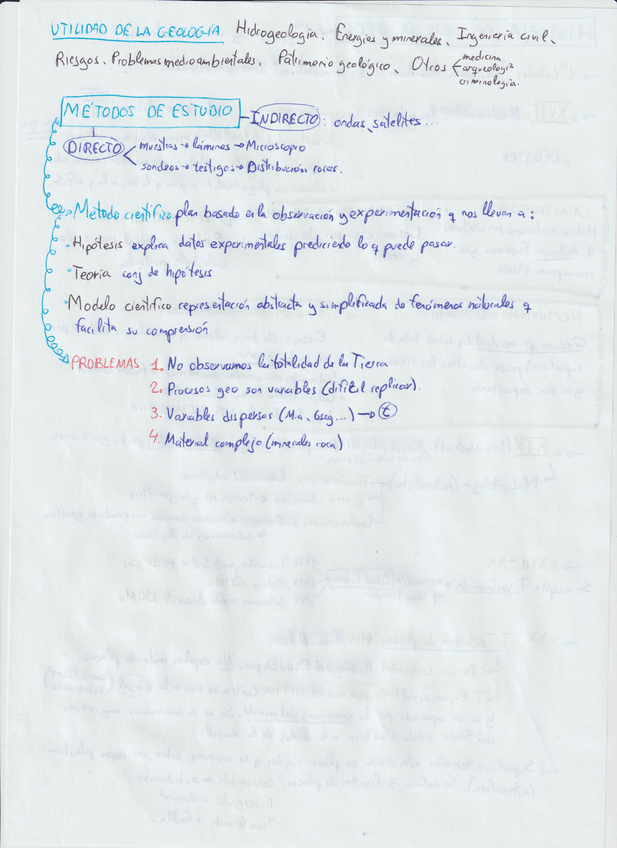 UTILIDAD DE LA GEOLOGIA Hidrogeología. Energías y minerales. Ingeniería civil.
Riesgos. Problemas medioambientales. Patrimonio geológico. Otros medicina
arqueología
criminología.
MÉTODOS DE ESTUDIO INDIRECTO: ondas, satelites...
DIRECTO muestras → láminas → Microscopio
sondeos → testigos → Distribución rocas.
Método científico plan basado en la observación y experimentación q nos llevan a:
· Hipótesis explica datos experimentales prediciendo lo q puede pasar.
· Teoría conj de hipótesis
· Modelo científico representación abstracta y simplificada de fenómenos naturales q
facilita su comprensión
PROBLEMAS 1. No observamos la totalidad de la Tierra
2. Procesos geo son variables (difícil replicar).
3. Variables dispersas (M.a, 6seg...) → t
4. Material complejo (minerales roca)